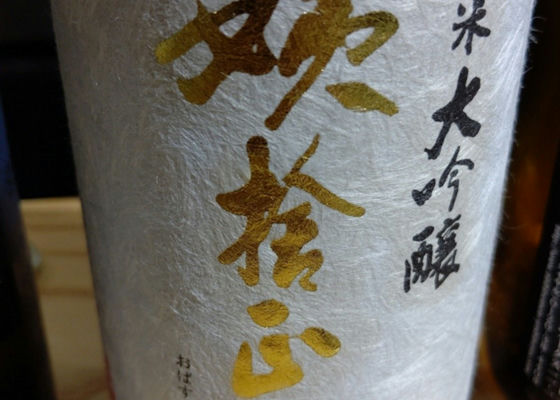 米大吟醸
姨捨正
おばす